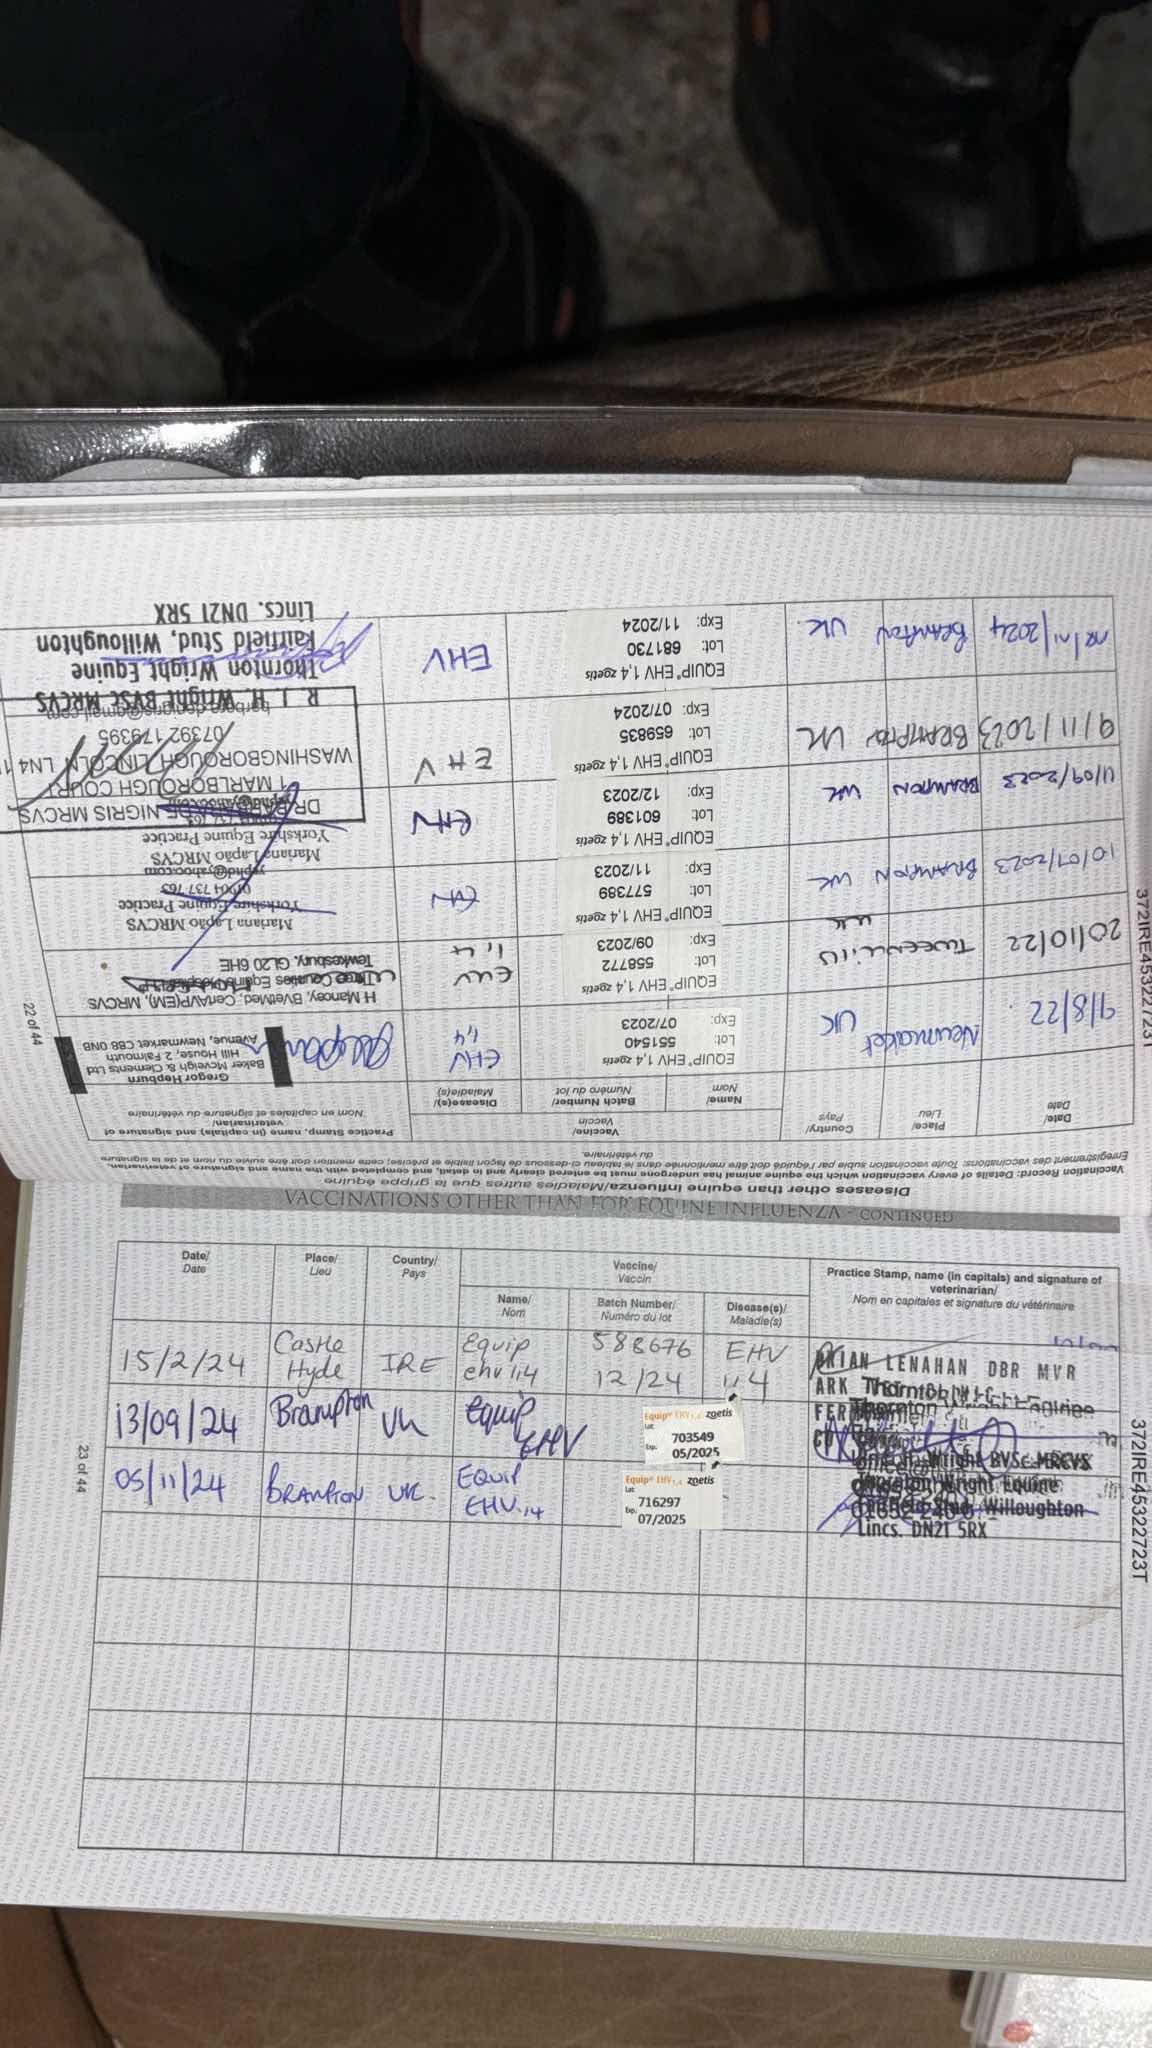 VACCINATIONS OTHER THAN FOR EQUINE INFLUENZA - CONTINUED
Diseases other than equine influenza/Maladies autres que la grippe équine
Vaccination Record: Details of every vaccination which the equine animal has undergone must be entered clearly and in detail, and completed with the name and signature of veterinarian.
Enregistrement des vaccinations: Toute vaccination subie par l'équidé doit être mentionnée dans le tableau ci-dessous de façon lisible et précise; cette mention doit être suivie du nom et de la signature
du vétérinaire.
Date/ Place/ Country/ Vaccine/ Practice Stamp, name (in capitals) and signature of
Date Lieu Pays Vaccin veterinarian/
Nom en capitales et signature du vétérinaire
Name/ Batch Number/ Disease(s)/
Nom Numéro du lot Maladie(s)
9/8/22 Newmarket UK
EQUIP® EHV 1,4 zoetis
Lot: 551540
Exp: 07/2023
EHV
1,4
Gregor Hepburn
Baker Mcveigh & Clements Ltd
Hill House, 2 Falmouth
Avenue, Newmarket CB8 0NB
20/10/22 UK
EQUIP® EHV 1,4 zoetis
Lot: 558772
Exp: 09/2023
EHV
1,4
H Mancey, BVetMed, CertAVP(EM), MRCVS
Three Counties Equine Hospital
Tewkesbury, GL20 6HE
10/07/2023 BRAMPTON UK
EQUIP® EHV 1,4 zoetis
Lot: 577389
Exp: 11/2023
EHV
Mariana Lapão MRCVS
Yorkshire Equine Practice
01904 737 763
yephd@yahoo.com
11/09/2023 BRAMPTON UK
EQUIP® EHV 1,4 zoetis
Lot: 601389
Exp: 12/2023
EHV
Mariana Lapão MRCVS
Yorkshire Equine Practice
9/11/2023 BRAMPTON UK
EQUIP® EHV 1,4 zoetis
Lot: 659835
Exp: 07/2024
EHV
DR BARBARA DE NIGRIS MRCVS
1 MARLBOROUGH COURT
WASHINGBOROUGH LINCOLN LN4
07392 179395
2024 BRAMPTON UK.
EQUIP® EHV 1,4 zoetis
Lot: 681730
Exp: 11/2024
EHV
R. J. H. Wright BVSc MRCVS
Thornton Wright Equine
Fairfield Stud, Willoughton
Lincs. DN21 5RX
22 of 44
372IRE45322723T
Date/ Place/ Country/ Vaccine/ Practice Stamp, name (in capitals) and signature of
Date Lieu Pays Vaccin veterinarian/
Nom en capitales et signature du vétérinaire
Name/ Batch Number/ Disease(s)/
Nom Numéro du lot Maladie(s)
15/2/24 Castle Hyde IRE Equip ehv 1,4 588676 12/24 EHV 1,4
BRIAN LENAHAN DBR MVR
13/09/24 Brampton UK Equip EHV
Equip® EHV 1,4 zoetis
Lot 703549
Exp. 05/2025
05/11/24 BRAMPTON UK. EQUIP EHV 1,4
Equip® EHV 1,4 zoetis
Lot 716297
Exp. 07/2025
Wright BVSc MRCVS
Thornton Wright Equine
Fairfield Stud, Willoughton
Lincs. DN21 5RX
23 of 44
372IRE45322723T